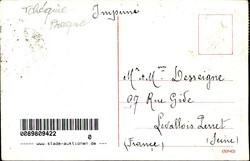 Tchéquie
Prague
Imprimé
Mr & Mme Desseigne
97 Rue Gide
Levallois Perret
(France) (Seine)
0089809422 0
www.stade-auktionen.de